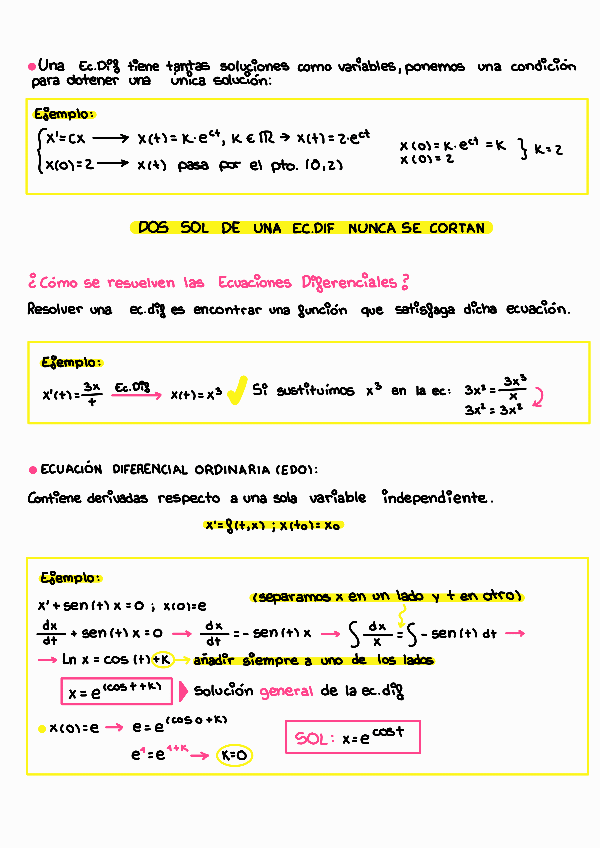 • Una Ec.Dif tiene tantas soluciones como variables, ponemos una condición
para obtener una única solución:
Ejemplo:
x'=cx → x(t)=K·e^ct, K ∈ ℝ → x(t)=2·e^ct
x(0)=K·e^ct =K
x(0)=2
} K=2
x(0)=2 → x(t) pasa por el pto. (0,2)
DOS SOL DE UNA EC.DIF NUNCA SE CORTAN
¿Cómo se resuelven las Ecuaciones Diferenciales?
Resolver una ec.dif es encontrar una función que satisfaga dicha ecuación.
Ejemplo:
x'(t)=3x/t Ec.Dif → x(t)=x³ ✓ Si sustituimos x³ en la ec: 3x²=3x³/x
3x²=3x²
• ECUACIÓN DIFERENCIAL ORDINARIA (EDO):
Contiene derivadas respecto a una sola variable independiente.
x'=f(t,x) ; x(t0)=x0
Ejemplo:
(separamos x en un lado y t en otro)
x'+sen(t)x=0 ; x(0)=e
dx/dt + sen(t)x=0 → dx/dt = -sen(t)x → ∫ dx/x = ∫ -sen(t) dt →
→ Ln x = cos(t)+K → añadir siempre a uno de los lados
x=e^(cost+K) solución general de la ec.dif
• x(0)=e → e=e^(cos0+K)
SOL: x=e^cost
e¹=e^1+K → K=0